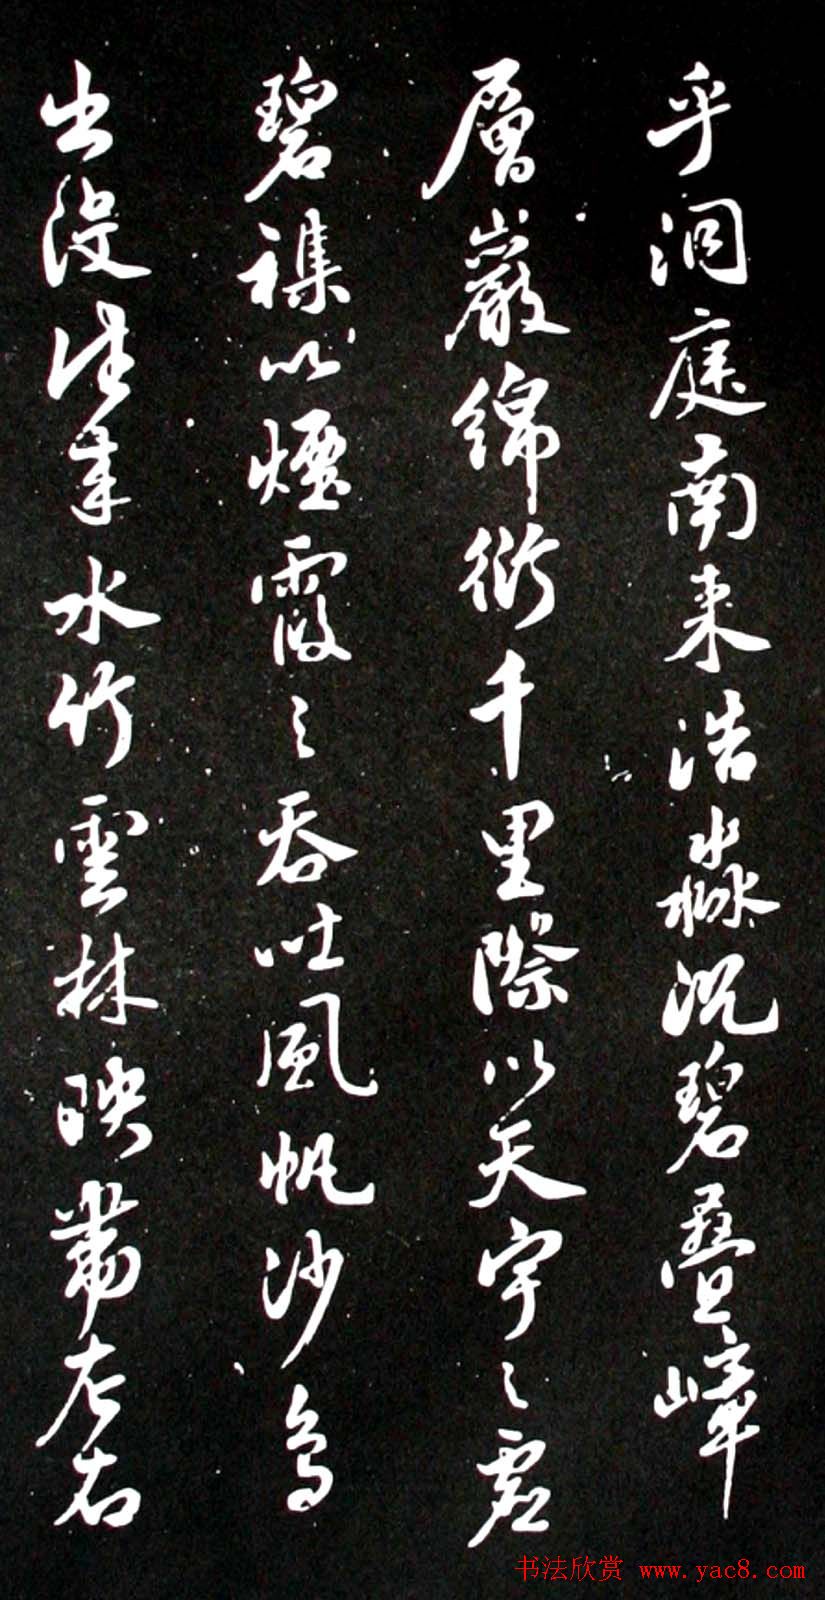 乎洞庭南来浩淼沉碧疊嶂
層巖綿衍千里際以天宇之虛
碧襍以煙霞之吞吐風帆沙鳥
出没往来水竹雲林映帶左右
书法欣赏 www.yac8.com